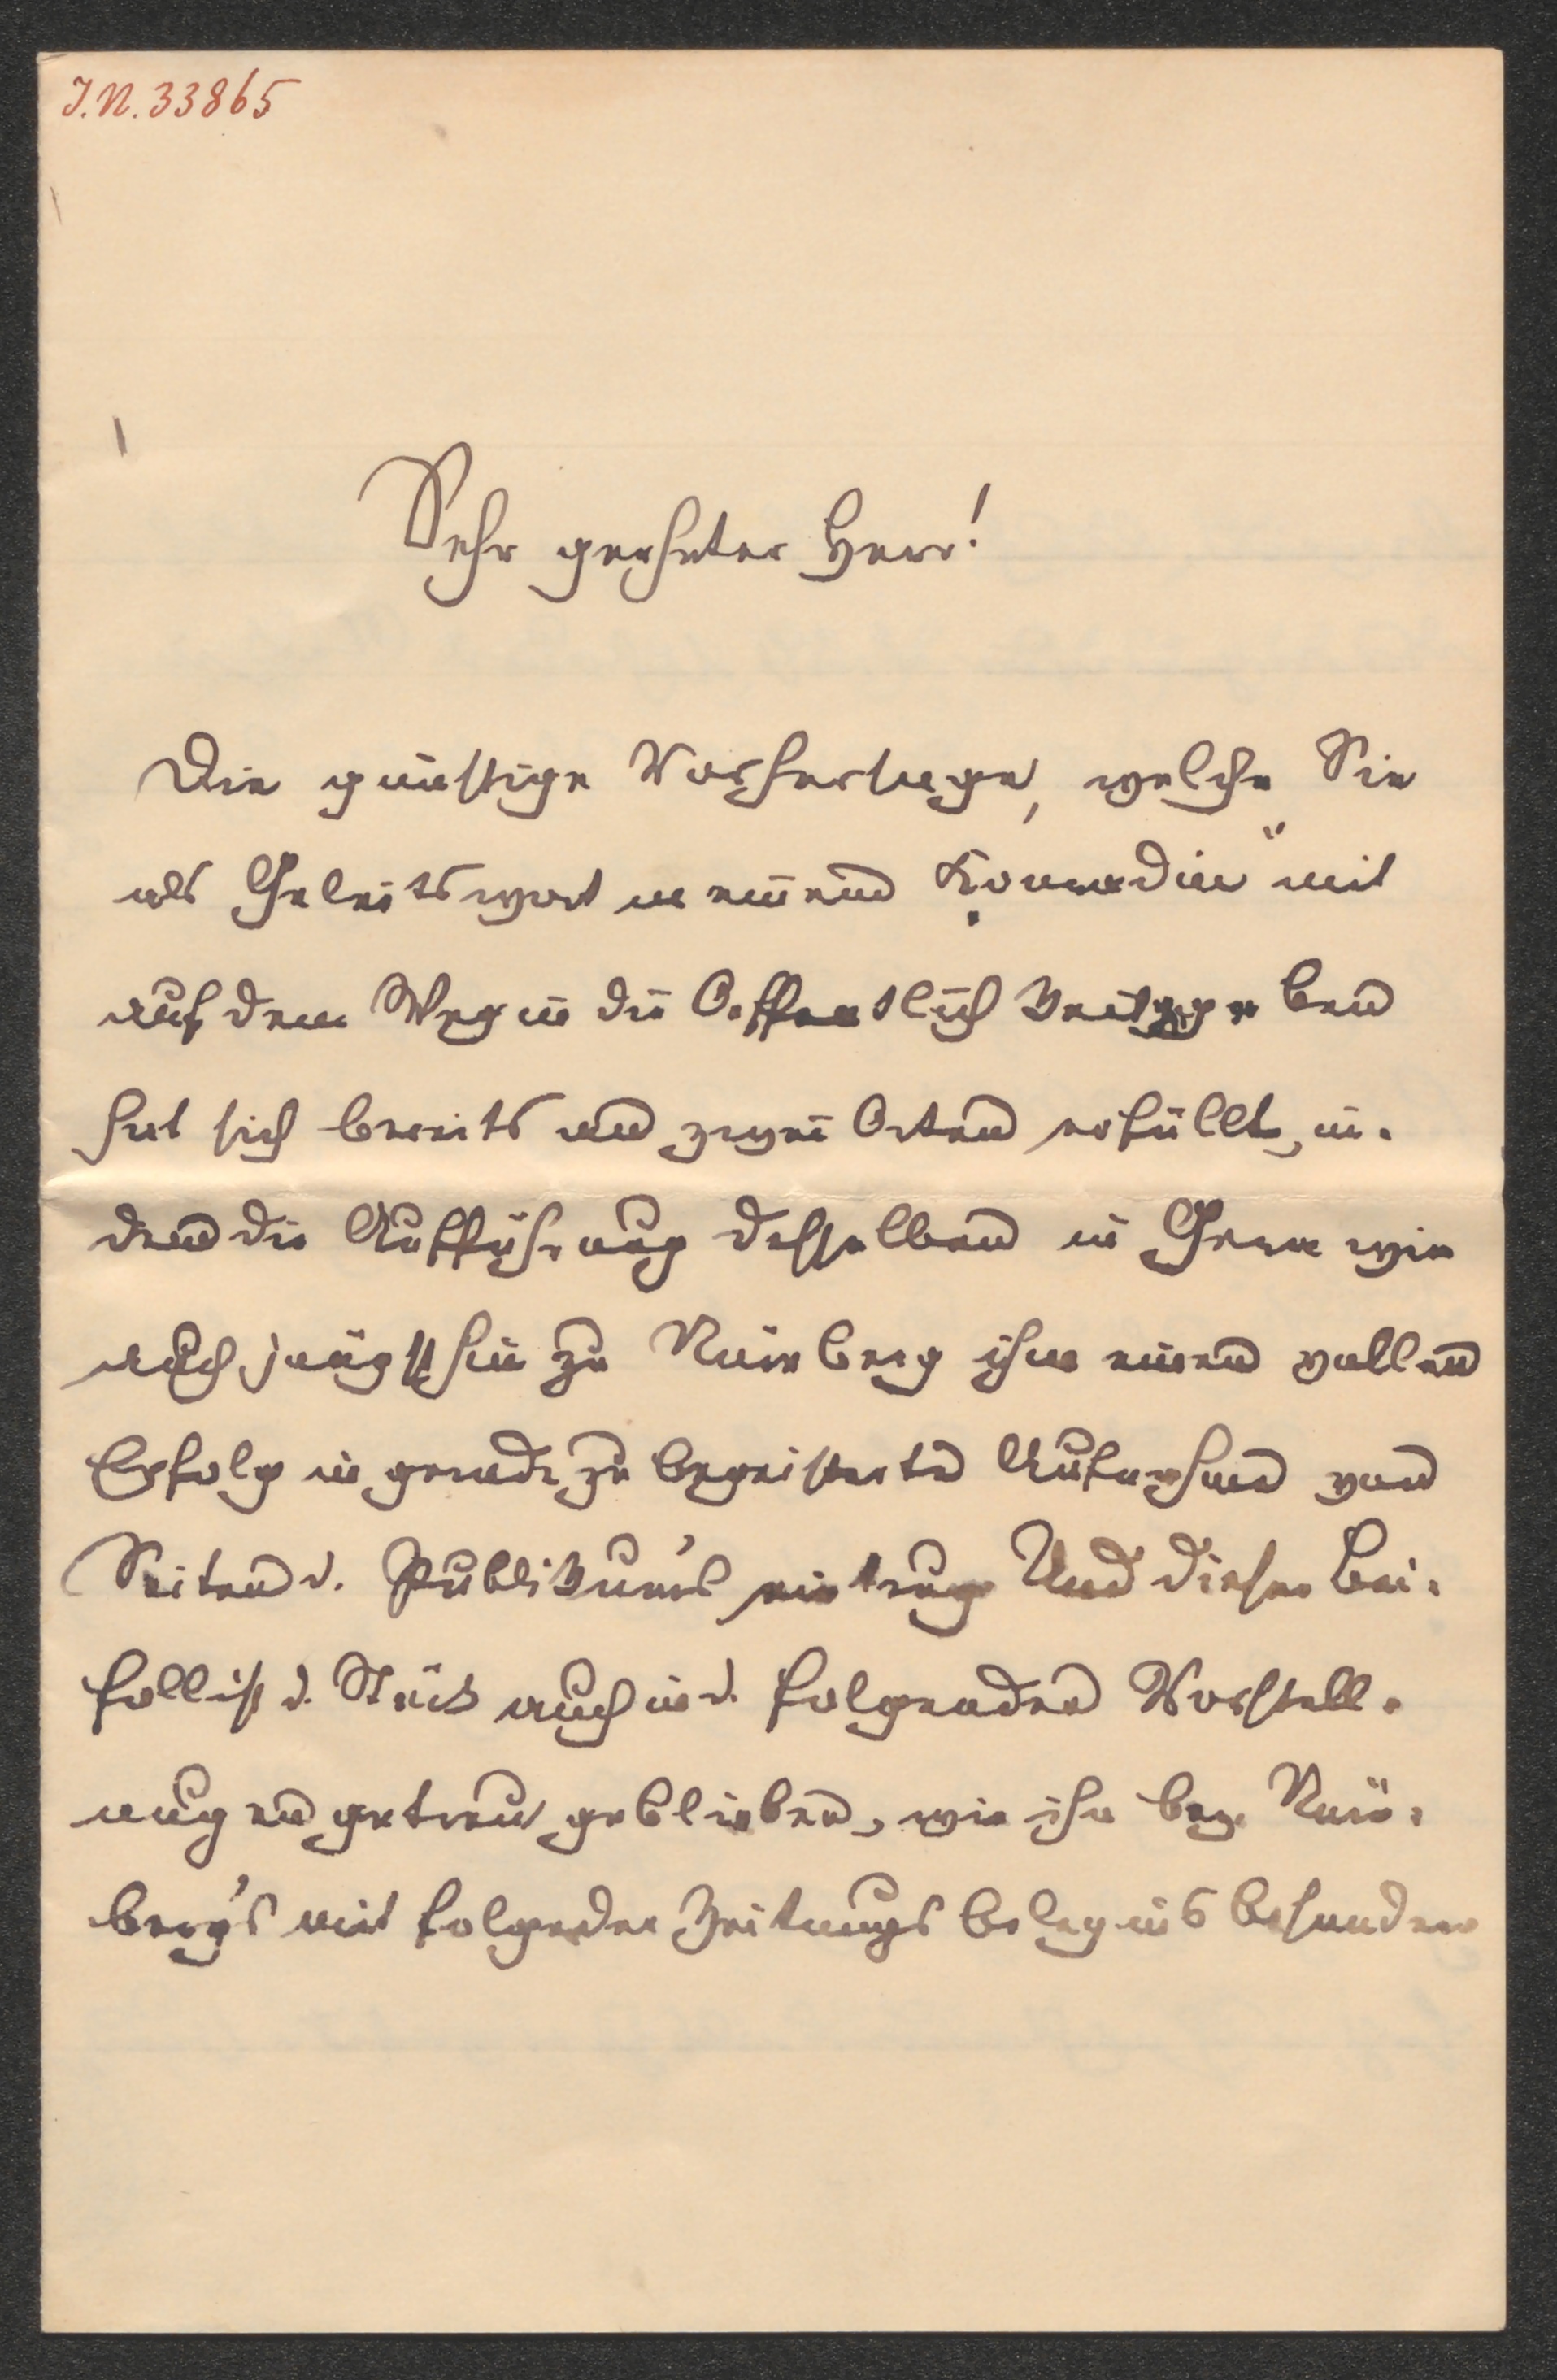 I.N. 33865
Sehr geehrter Herr!
Die günstige Vorhersage, welche Sie
als Geleitswort meinem „Komödie" mit
auf dem Weg in die Oeffentlichkeit gegeben
hat sich bereits an zwei Orten erfüllt, in-
dem die Aufführung desselben in Gera wie
auch jüngsthin zu Nürnberg ihm einen vollen
Erfolg in geradezu begeisterten Aufnehmen von
Seiten d. Publikum's eintrug. Und dieser Bei-
fall ist d. Stück auch in d. folgenden Vorstell-
ungen getreu geblieben, wie ihn bez. Nürn-
berg's mit folgender Zeitungsbeleg ins besonders